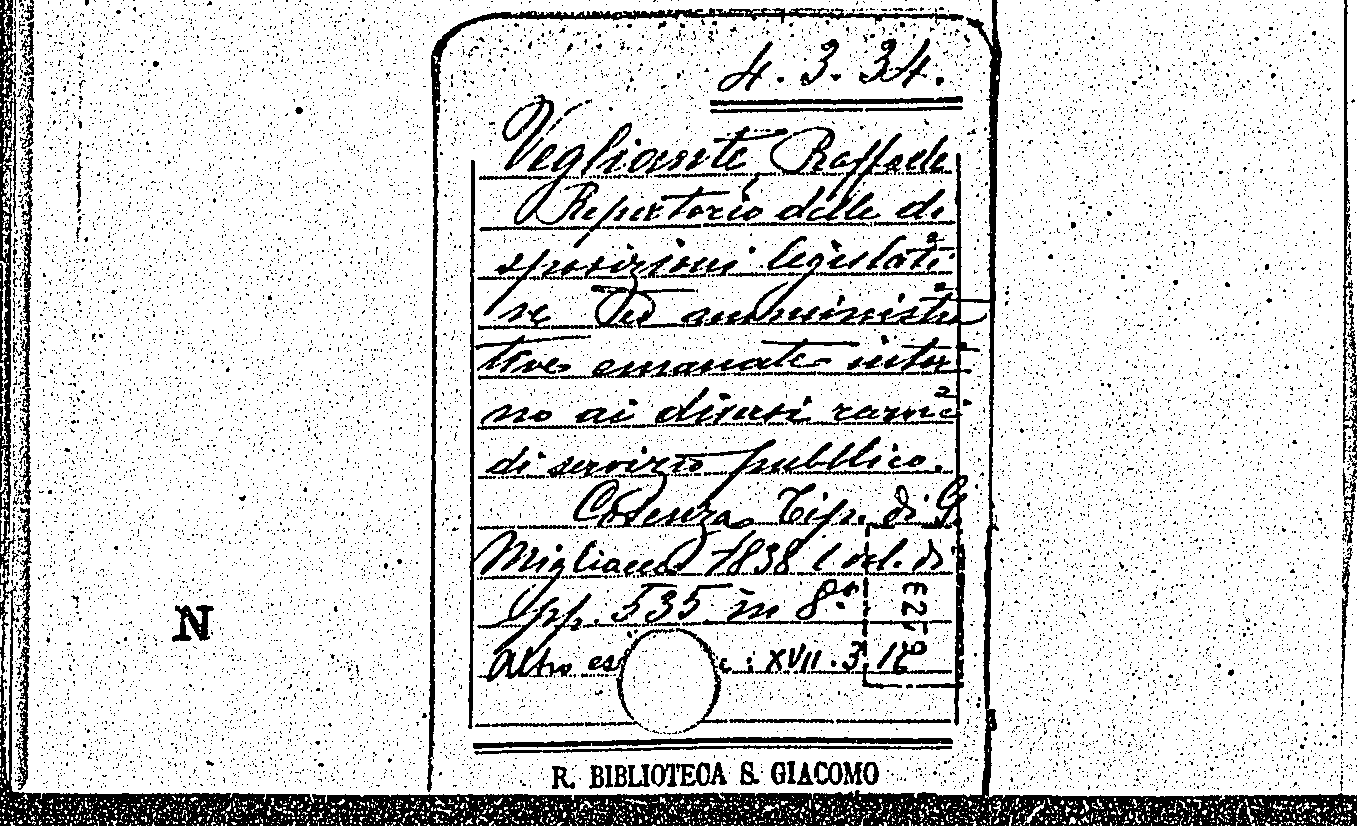 4. 3. 34.
Vegliante, Raffaele
Repertorio delle di
sposizioni legislati
ve ed amministra
tive emanate intor
no ai diversi rami
di servizio pubblico.
Cosenza, Tip. di G.
Migliaccio 1838 1 vol. di
pp. 535 in 8º.
Altro es : XVII. 3. 16
N
R. BIBLIOTECA S. GIACOMO